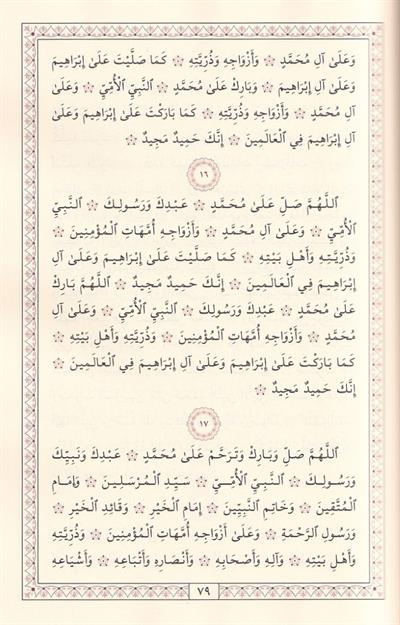 وَعَلَىٰ آلِ مُحَمَّدٍ ❁ وَأَزْوَاجِهِ وَذُرِّيَّتِهِ ❁ كَمَا صَلَّيْتَ عَلَىٰ إِبْرَاهِيمَ
وَعَلَىٰ آلِ إِبْرَاهِيمَ ❁ وَبَارِكْ عَلَىٰ مُحَمَّدٍ ❁ ٱلنَّبِيِّ ٱلْأُمِّيِّ ❁ وَعَلَىٰ
آلِ مُحَمَّدٍ ❁ وَأَزْوَاجِهِ وَذُرِّيَّتِهِ ❁ كَمَا بَارَكْتَ عَلَىٰ إِبْرَاهِيمَ وَعَلَىٰ
آلِ إِبْرَاهِيمَ فِي ٱلْعَالَمِينَ ❁ إِنَّكَ حَمِيدٌ مَجِيدٌ ❁
١٦
ٱللَّهُمَّ صَلِّ عَلَىٰ مُحَمَّدٍ ❁ عَبْدِكَ وَرَسُولِكَ ❁ ٱلنَّبِيِّ
ٱلْأُمِّيِّ ❁ وَعَلَىٰ آلِ مُحَمَّدٍ ❁ وَأَزْوَاجِهِ أُمَّهَاتِ ٱلْمُؤْمِنِينَ ❁
وَذُرِّيَّتِهِ وَأَهْلِ بَيْتِهِ ❁ كَمَا صَلَّيْتَ عَلَىٰ إِبْرَاهِيمَ وَعَلَىٰ آلِ
إِبْرَاهِيمَ فِي ٱلْعَالَمِينَ ❁ إِنَّكَ حَمِيدٌ مَجِيدٌ ❁ ٱللَّهُمَّ بَارِكْ
عَلَىٰ مُحَمَّدٍ ❁ عَبْدِكَ وَرَسُولِكَ ❁ ٱلنَّبِيِّ ٱلْأُمِّيِّ ❁ وَعَلَىٰ آلِ
مُحَمَّدٍ ❁ وَأَزْوَاجِهِ أُمَّهَاتِ ٱلْمُؤْمِنِينَ ❁ وَذُرِّيَّتِهِ وَأَهْلِ بَيْتِهِ ❁
كَمَا بَارَكْتَ عَلَىٰ إِبْرَاهِيمَ وَعَلَىٰ آلِ إِبْرَاهِيمَ فِي ٱلْعَالَمِينَ ❁
إِنَّكَ حَمِيدٌ مَجِيدٌ ❁
١٧
ٱللَّهُمَّ صَلِّ وَبَارِكْ وَتَرَحَّمْ عَلَىٰ مُحَمَّدٍ ❁ عَبْدِكَ وَنَبِيِّكَ
وَرَسُولِكَ ❁ ٱلنَّبِيِّ ٱلْأُمِّيِّ ❁ سَيِّدِ ٱلْمُرْسَلِينَ ❁ وَإِمَامِ
ٱلْمُتَّقِينَ ❁ وَخَاتِمِ ٱلنَّبِيِّينَ ❁ إِمَامِ ٱلْخَيْرِ ❁ وَقَائِدِ ٱلْخَيْرِ ❁
وَرَسُولِ ٱلرَّحْمَةِ ❁ وَعَلَىٰ أَزْوَاجِهِ أُمَّهَاتِ ٱلْمُؤْمِنِينَ ❁ وَذُرِّيَّتِهِ
وَأَهْلِ بَيْتِهِ ❁ وَآلِهِ وَأَصْحَابِهِ ❁ وَأَنْصَارِهِ وَأَتْبَاعِهِ ❁ وَأَشْيَاعِهِ
٧٩